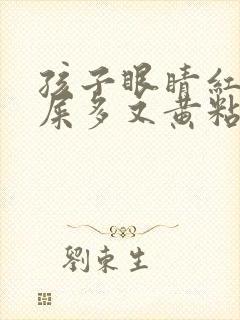 孩子眼睛红
屎多又黄粘
劉东生